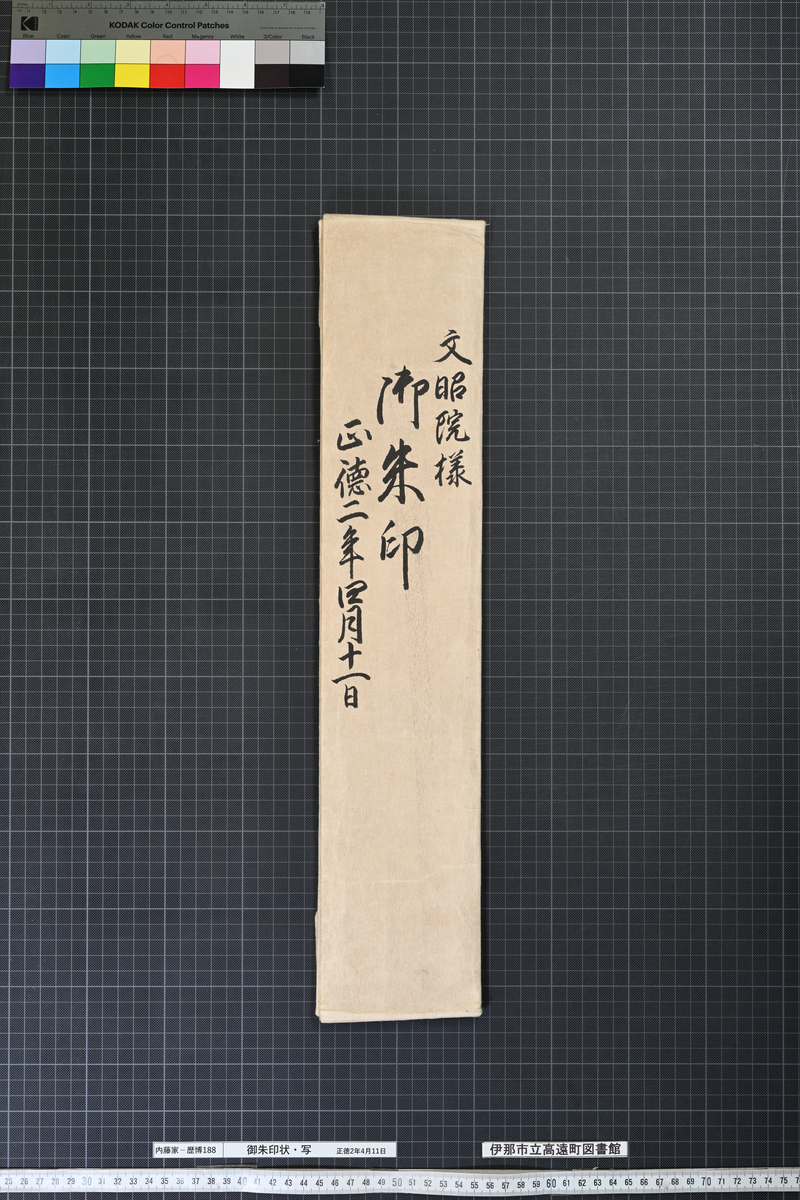 KODAK Color Control Patches
Blue Cyan Green Yellow Red Magenta White 3/Color Black
文昭院様
御朱印
正徳二年四月十一日
内藤家－歴博188 御朱印状・写 正徳2年4月11日
伊那市立高遠町図書館
25 26 27 28 29 30 31 32 33 34 35 36 37 38 39 40 41 42 43 44 45 46 47 48 49 50 51 52 53 54 55 56 57 58 59 60 61 62 63 64 65 66 67 68 69 70 71 72 73 74 75